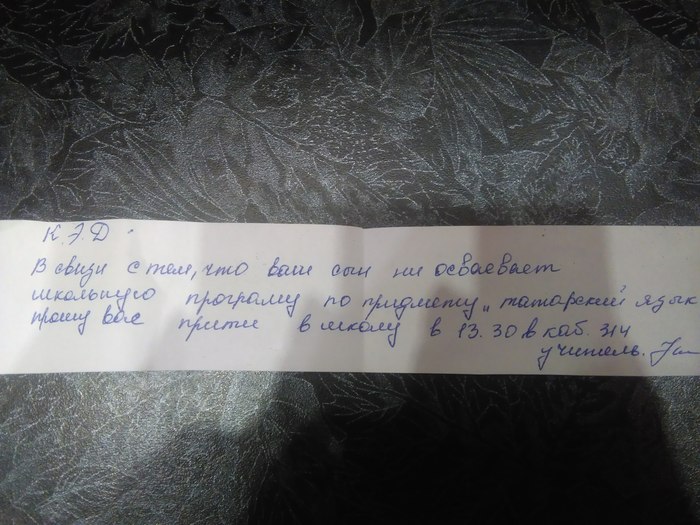 К.Э.Д.
В свизи с тем, что ваш сын ни осваевает
школьную програму по придмету „татарский язык
прошу вас прити в школу в 13.30 в каб. 314
учитель.